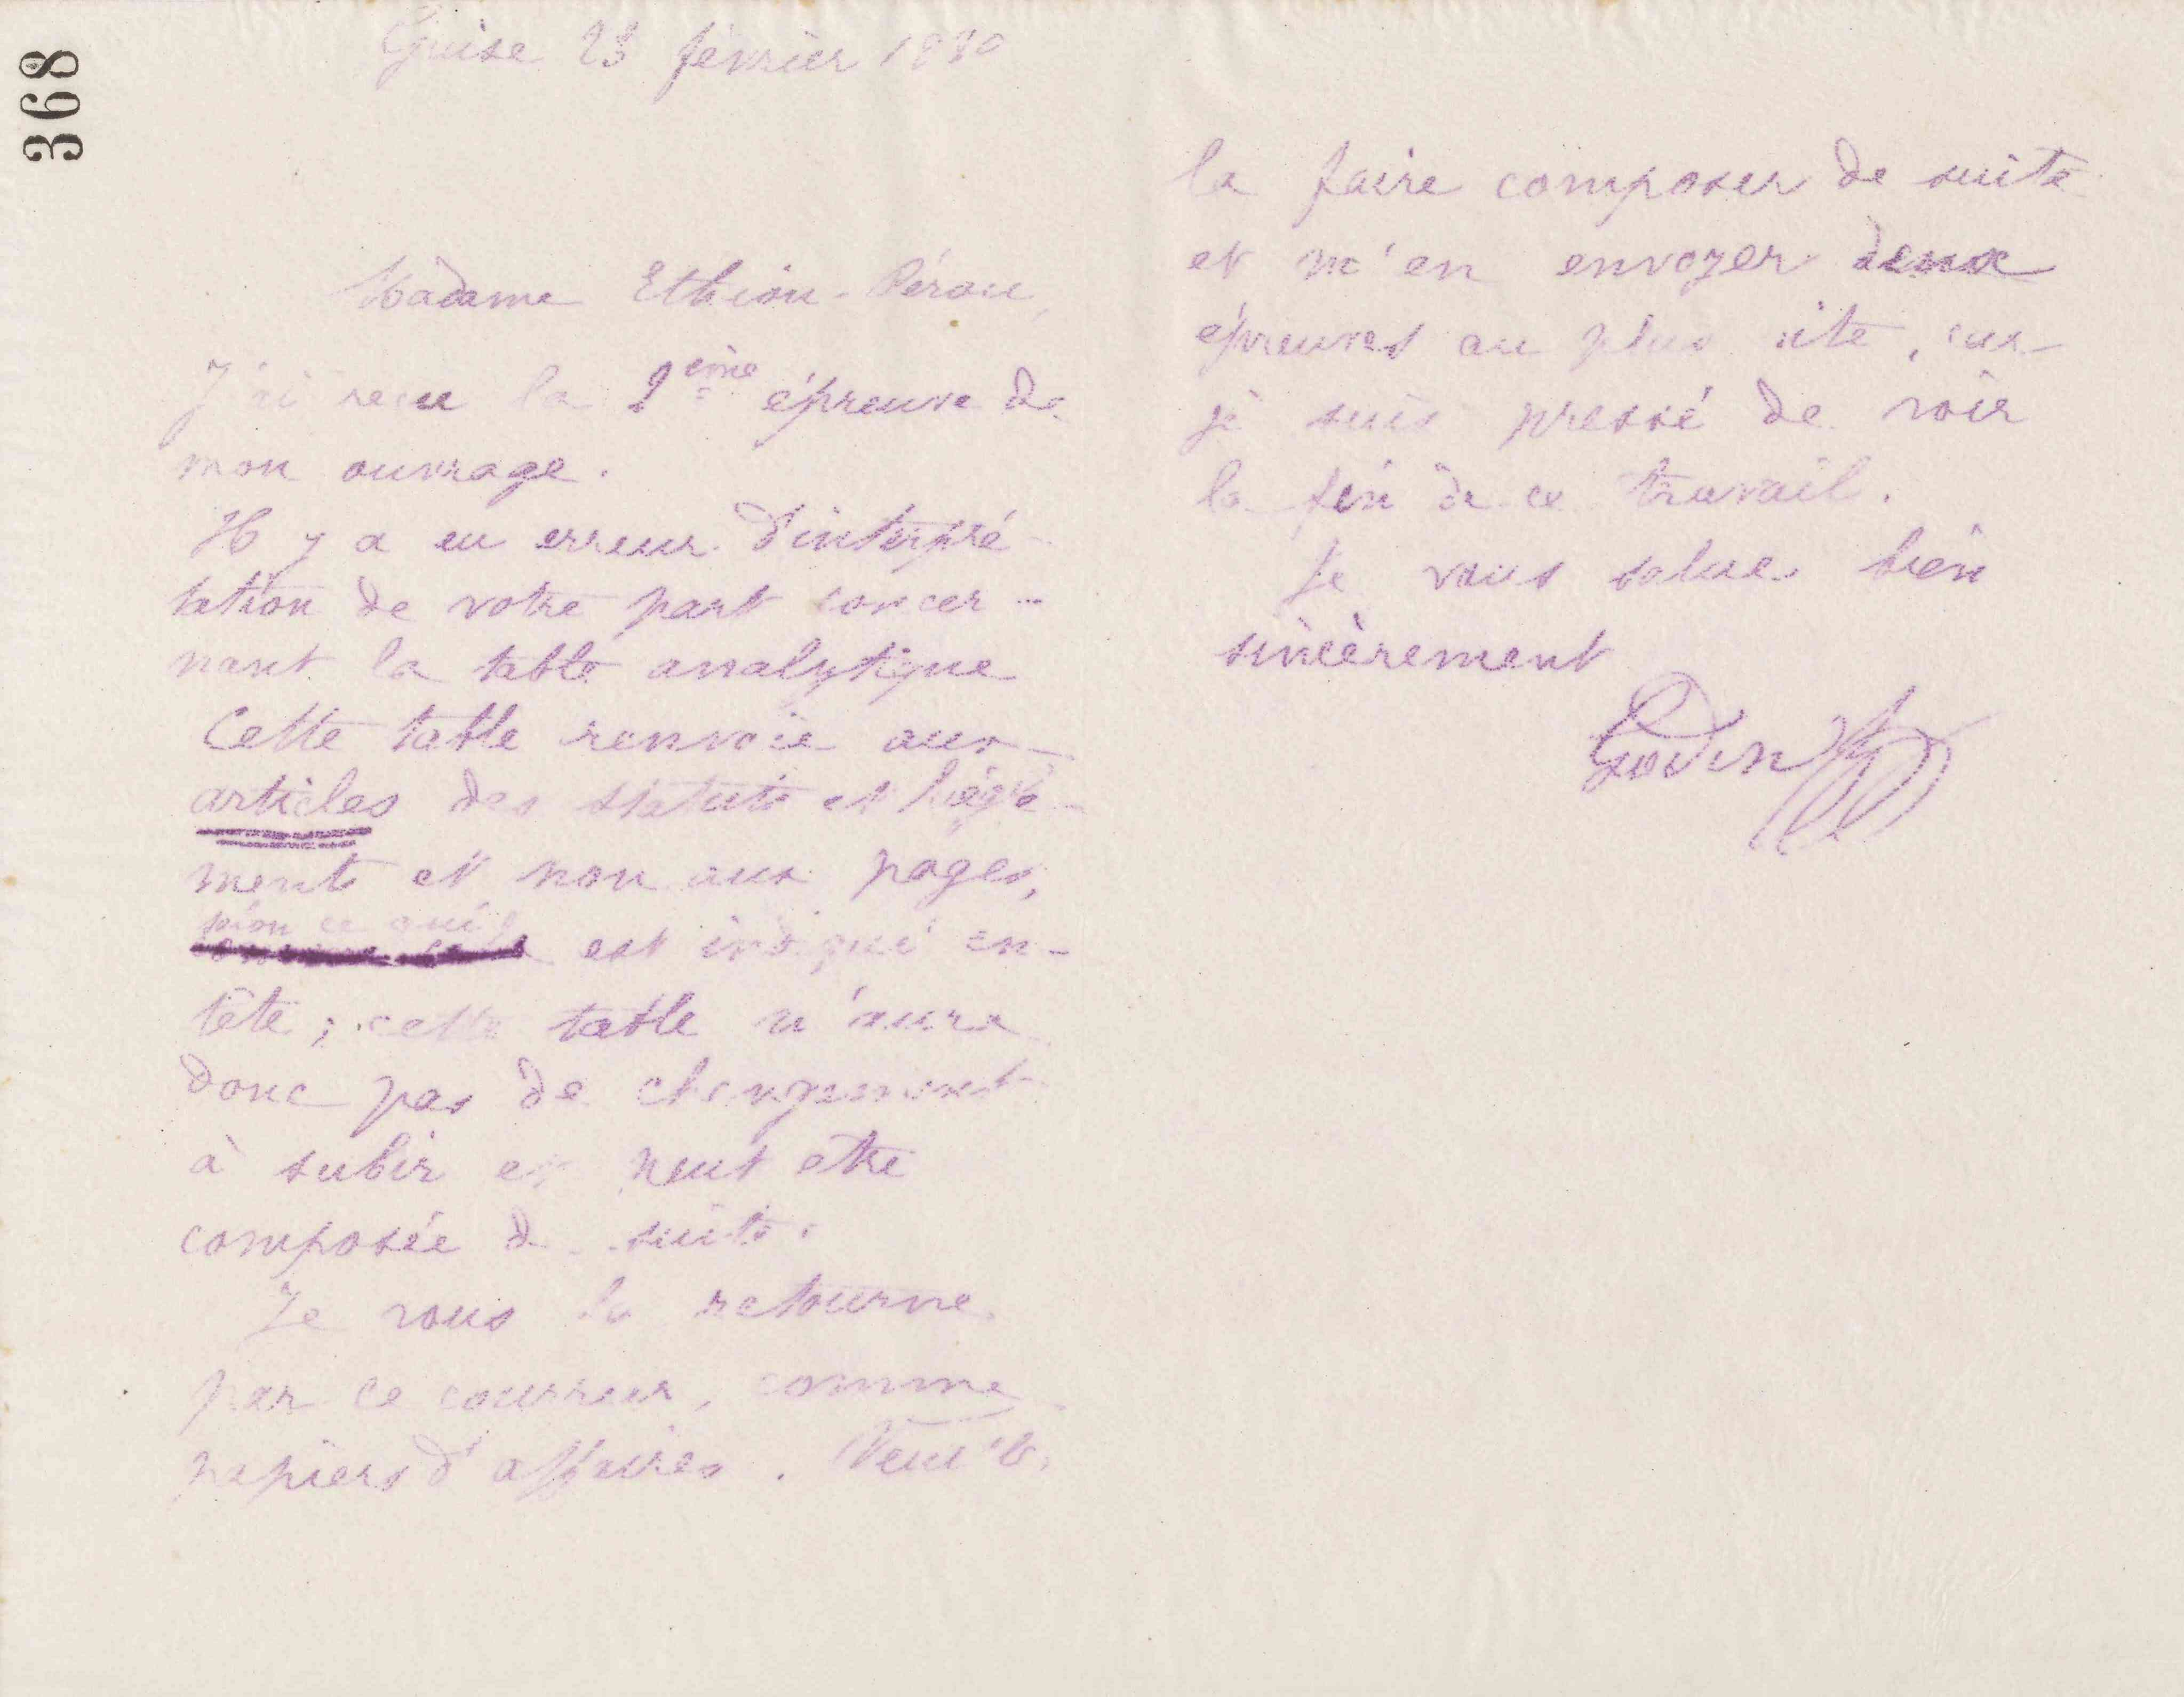 368
Guise 23 février 1880
Madame Ethiou-Pérou,
J'ai reçu la 2ème épreuve de
mon ouvrage.
Il y a eu erreur d'interpré-
tation de votre part concer-
nant la table analytique
Cette table renvoie aux
articles des statuts et règle-
ments et non aux pages,
ce qui est indiqué en-
tête ; cette table n'aura
donc pas de changement
à subir et peut etre
composée de suite.
Je vous la retourne
par ce courrier, comme
papiers d'affaires. Veuillez
la faire composer de suite
et m'en envoyer deux
épreuves au plus vite, car
je suis pressé de voir
la fin de ce travail.
Je vous salue bien
sincèrement
Godin